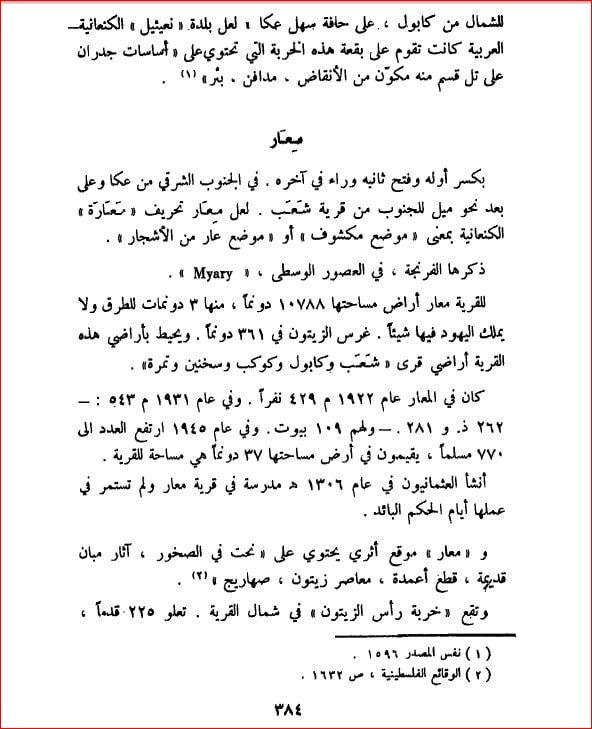 للشمال من كابول ، على حافة سهل عكا « لعل بلدة « نعيئيل » الكنعانية ــ
العربية كانت تقوم على بقعة هذه الخربة التي تحتوي على « أساسات جدران
على تل قسم منه مكوّن من الأنقاض ، مدافن ، بئر » (١) .
مِعَار
بكسر أوله وفتح ثانيه وراء في آخره . في الجنوب الشرقي من عكا وعلى
بعد نحو ميل للجنوب من قرية شَعَب . لعل مِعار تحريف « مَعَارَة »
الكنعانية بمعنى « موضع مكشوف » أو « موضع عار من الأشجار » .
ذكرها الفرنجة ، في العصور الوسطى ، « Myary » .
للقرية معار أراض مساحتها ١٠٧٨٨ دونماً ، منها ٣ دونمات للطرق ولا
يملك اليهود فيها شيئاً . غرس الزيتون في ٣٦١ دونماً . ويحيط بأراضي هذه
القرية أراضي قرى « شَعَب وكابول وكوكب وسخنين وتمرة» .
كان في المعار عام ١٩٢٢ م ٤٢٩ نفراً . وفي عام ١٩٣١ م ٥٤٣ : ــ
٢٦٢ ذ. و ٢٨١ . ــ ولهم ١٠٩ بيوت . وفي عام ١٩٤٥ ارتفع العدد الى
٧٧٠ مسلماً ، يقيمون في أرض مساحتها ٣٧ دونماً هي مساحة للقرية .
أنشأ العثمانيون في عام ١٣٠٦ هـ مدرسة في قرية معار ولم تستمر في
عملها أيام الحكم البائد .
و « معار » موقع أثري يحتوي على « نحت في الصخور ، آثار مبان
قديمة ، قطع أعمدة ، معاصر زيتون ، صهاريج » (٢) .
وتقع « خربة رأس الزيتون » في شمال القرية . تعلو ٢٢٥ قدماً ،
(١) نفس المصدر ١٥٩٦ .
(٢) الوقائع الفلسطينية ، ص ١٦٣٢ .
٣٨٤